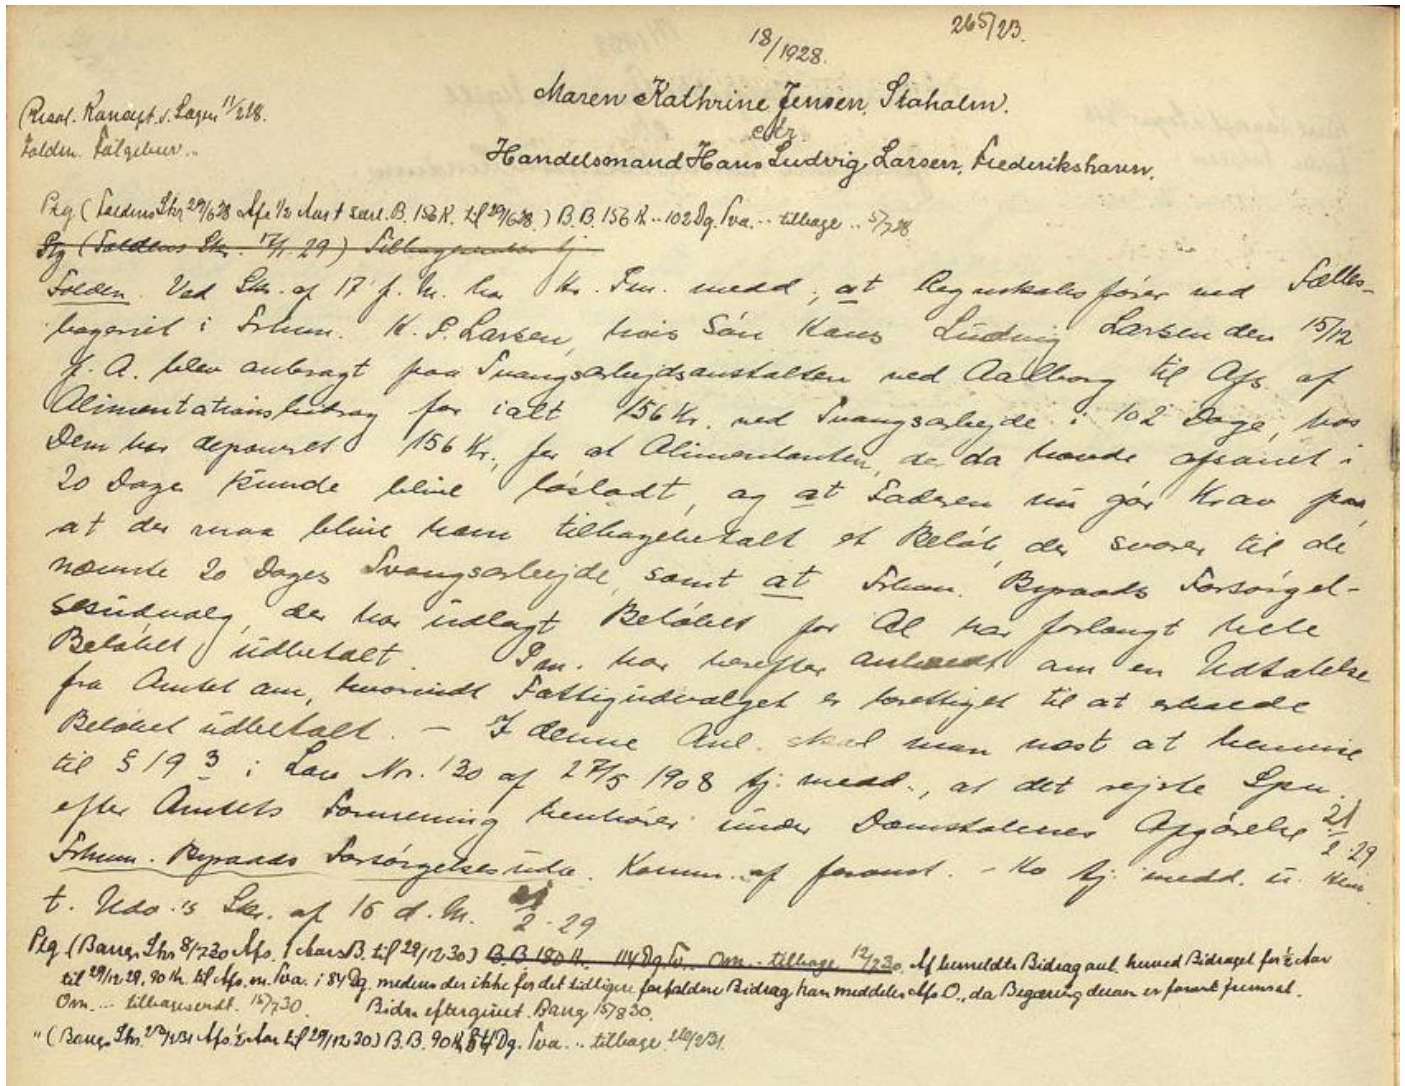 265/23.
18/1928.
Maren Kathrine Jensen, Staholm.
ctr.
Handelsmand Hans Ludvig Larsen, Frederikshavn.
Resol. Koncept. s. Sagen 11/2 28.
Foldn. Følgebrev..
Ptg (Foldens Skr 29/6 28 Afs 1/2 Aars + særl. B. 156 K. til 29/6 28.) B.B. 156 K.. 102 Dg. Tva... tilbage .. 5/7 28
Ptg (Foldens Skr. 17/1. 29) tj
Folden. Ved Skr. af 17 f. M. har Hr. Pm. medd., at Regnskabsfører ved Fælles-
bageriet i Frhvn. K. P. Larsen, hvis Søn Hans Ludvig Larsen den 15/12
f. A. blev anbragt paa Tvangsarbejdsanstalten ved Aalborg til Afs. af
Alimentationsbidrag for ialt 156 Kr. ved Tvangsarbejde i 102 Dage, hos
Dem har deponeret 156 Kr., for at Alimentanten, der da havde afsonet i
20 Dage kunde blive løsladt, og at Faderen nu gør Krav paa,
at der maa blive ham tilbagebetalt et Beløb, der svarer til de
nævnte 20 Dages Tvangsarbejde, samt at Frhvn. Byraads Forsørgel-
sesudvalg, der har udlagt Beløbet for Al har forlangt hele
Beløbet udbetalt. Pm. har herefter anmodet om en Udtalelse
fra Amtet om, hvorvidt Fattigudvalget er berettiget til at erholde
Beløbet udbetalt. - I denne Anl. skal man næst at henvise
til § 19 3 i Lov Nr. 130 af 27/5 1908 tj. medd., at det rejste Spm.
efter Amtets Formening henhører under Domstolenes Afgørelse 21/2 29
Frhvn. Byraads Forsørgelsesudv. Komm. af foranst. - Ko tj. medd. u. Hen
t. Udv.'s Skr. af 15 d. M. 21/2 29
Ptg (Bang. Skr 8/7 30 Afs. 1 Aars B. til 29/12 30) B.B 180 K. 114 Dg. Tv.. Om... tilbage 12/7 30. Af bemeldte Bidrag anl. herved Bidraget for 1/2 Aar
til 29/12 29. 90 Kr. til Afs. m. Tva. i 84 Dg. medens der ikke for det tidligere forfaldne Bidrag kan meddeles Afs. O., da Begæring derom er for sent fremsat.
Om... tilbagesendt. 16/7 30. Bidr. eftergivet. Bang 15/8 30.
" (Bang. Skr. 2/31 Afs 1/2 Aar til 29/12 30) B.B. 90 K. 84 Dg. Tva... tilbage 2/31.